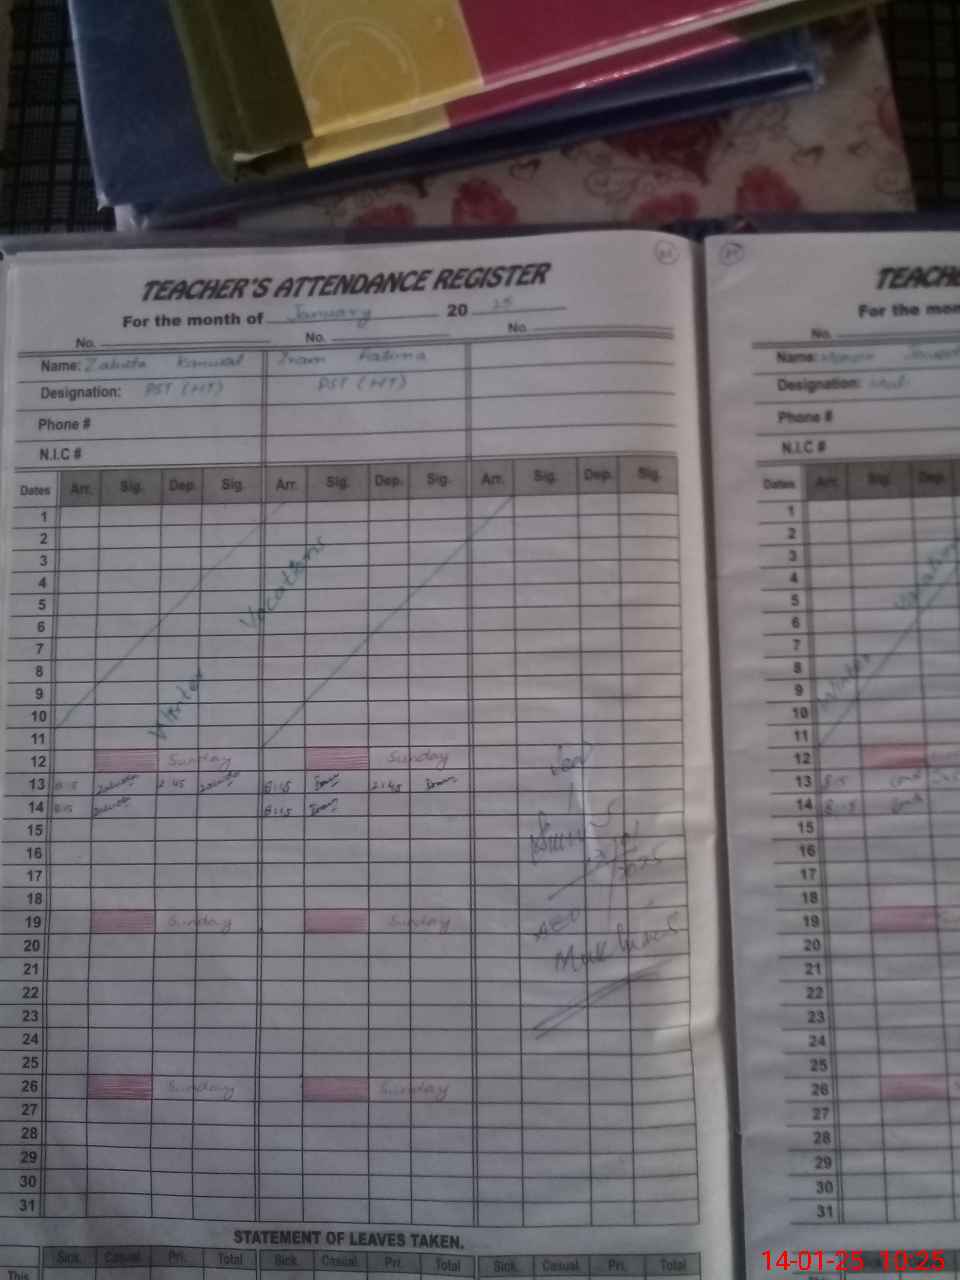 TEACHER'S ATTENDANCE REGISTER
For the month of January 20 25
No. No. No.
Name: Zahida Kanwal Iram Fatima
Designation: PST (HT) PST (HT)
Phone #
N.I.C #
Dates Arr. Sig. Dep. Sig. Arr. Sig. Dep. Sig. Arr. Sig. Dep. Sig.
1
2
3
4
5
6
7
8
9
10
11
Winter Vacations
12 Sunday Sunday
13 8:15 2:45 8:15 2:45
14 8:15 8:15
15
16
17
18
19 Sunday Sunday
20
21
22
23
24
25
26 Sunday Sunday
27
28
29
30
31
2025
AEO
STATEMENT OF LEAVES TAKEN.
Sick. Casual. Pri. Total Sick. Casual. Pri. Total Sick. Casual. Pri. Total
This
TEACH
For the mon
No.
Name:
Designation:
Phone #
N.I.C #
Dates Arr. Sig. Dep.
1
2
3
4
5
6
7
8
9
10
11
Winter
12
13 8:15
14 8:15
15
16
17
18
19
20
21
22
23
24
25
26
27
28
29
30
31
14-01-25 10:25